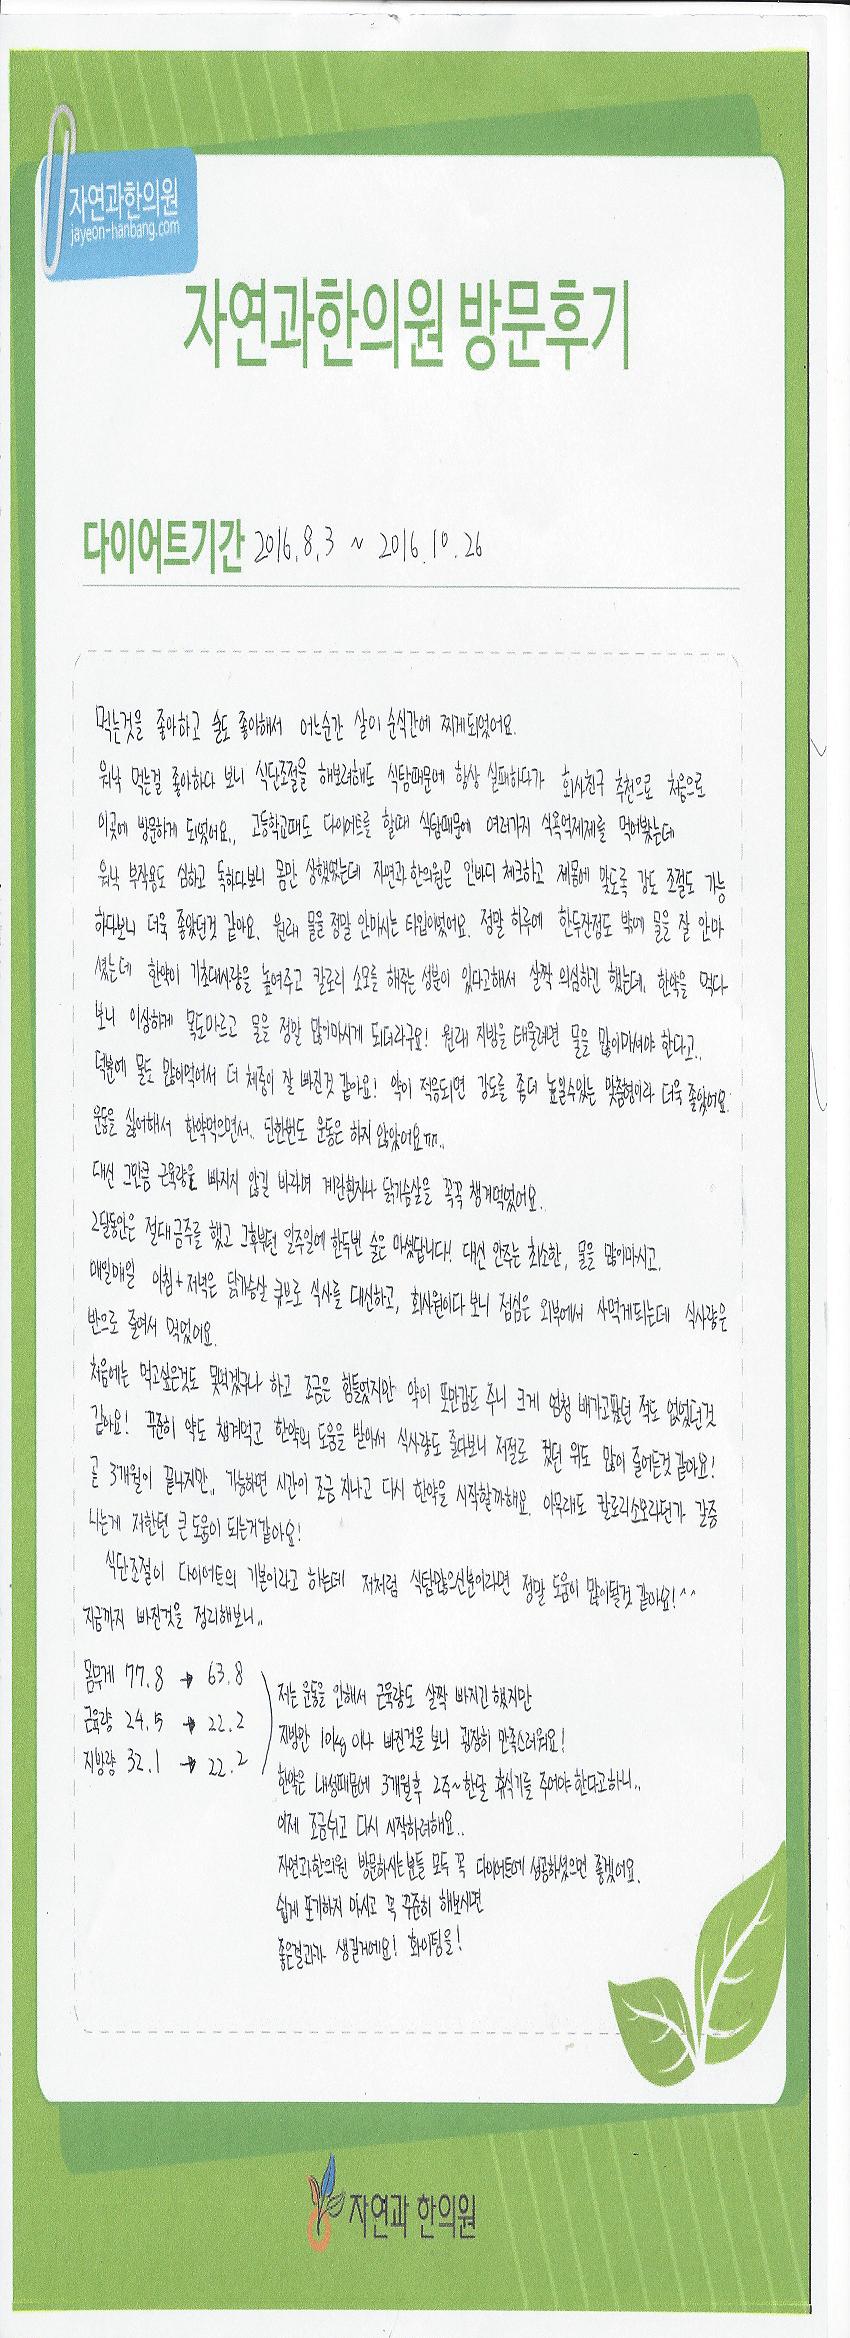 자연과한의원
jayeon-hanbang.com
자연과한의원 방문후기
다이어트기간 2016.8.3 ~ 2016.10.26
먹는것을 좋아하고 술도 좋아해서 어느순간 살이 순식간에 찌게되었어요.
워낙 먹는걸 좋아하다 보니 식단조절을 해보려해도 식탐때문에 항상 실패하다가 회사친구 추천으로 처음으로
이곳에 방문하게 되었어요.. 고등학교때도 다이어트를 할때 식탐때문에 여러가지 식욕억제제를 먹어봤는데
워낙 부작용도 심하고 독하다보니 몸만 상했었는데 자연과한의원은 인바디 체크하고 제몸에 맞도록 강도 조절도 가능
하다보니 더욱 좋았던것 같아요. 원래 물을 정말 안마시는 타입이었어요. 정말 하루에 한두잔정도 밖에 물을 잘 안마
셨는데 한약이 기초대사량을 높여주고 칼로리 소모를 해주는 성분이 있다고해서 살짝 의심하긴 했는데. 한약을 먹다
보니 이상하게 목도마르고 물을 정말 많이마시게 되더라구요! 원래 지방을 태울려면 물을 많이마셔야 한다고..
덕분에 물도 많이먹어서 더 체중이 잘 빠진것 같아요! 약이 적응되면 강도를 좀더 높일수있는 맞춤형이라 더욱 좋았어요.
운동을 싫어해서 한약먹으면서.. 단한번도 운동은 하지 않았어요ㅠㅠ..
대신 그만큼 근육량을 빠지지 않길 바라며 계란흰자나 닭가슴살을 꼭꼭 챙겨먹었어요.
2달동안은 절대금주를 했고 그후부턴 일주일에 한두번 술은 마셨답니다! 대신 안주는 최소한, 물을 많이마시고.
매일매일 아침+저녁은 닭가슴살 큐브로 식사를 대신하고, 회사원이다 보니 점심은 외부에서 사먹게되는데 식사량은
반으로 줄여서 먹었어요.
처음에는 먹고싶은것도 못먹겠구나 하고 조금은 힘들었지만 약이 포만감도 주니 크게 엄청 배가고팠던 적도 없었던것
같아요! 꾸준히 약도 챙겨먹고 한약의 도움을 받아서 식사량도 줄다보니 저절로 컸던 위도 많이 줄어든것 같아요!
곧 3개월이 끝나지만.. 가능하면 시간이 조금 지나고 다시 한약을 시작할까해요. 아무래도 칼로리소모라던가 갈증
나는게 저한텐 큰 도움이 되는거같아요!
식단조절이 다이어트의 기본이라고 하는데 저처럼 식탐많으신분이라면 정말 도움이 많이될것 같아요!^^
지금까지 빠진것을 정리해보니..
몸무게 77.8 → 63.8
근육량 24.5 → 22.2
지방량 32.1 → 22.2
저는 운동을 안해서 근육량도 살짝 빠지긴 했지만
지방만 10kg 이나 빠진것을 보니 굉장히 만족스러워요!
한약은 내성때문에 3개월후 2주~한달 휴식기를 주어야 한다고하니..
이제 조금쉬고 다시 시작하려해요..
자연과한의원 방문하시는분들 모두 꼭 다이어트에 성공하셨으면 좋겠어요.
쉽게 포기하지 마시고 꼭 꾸준히 해보시면
좋은결과가 생길거에요! 화이팅을!
자연과 한의원